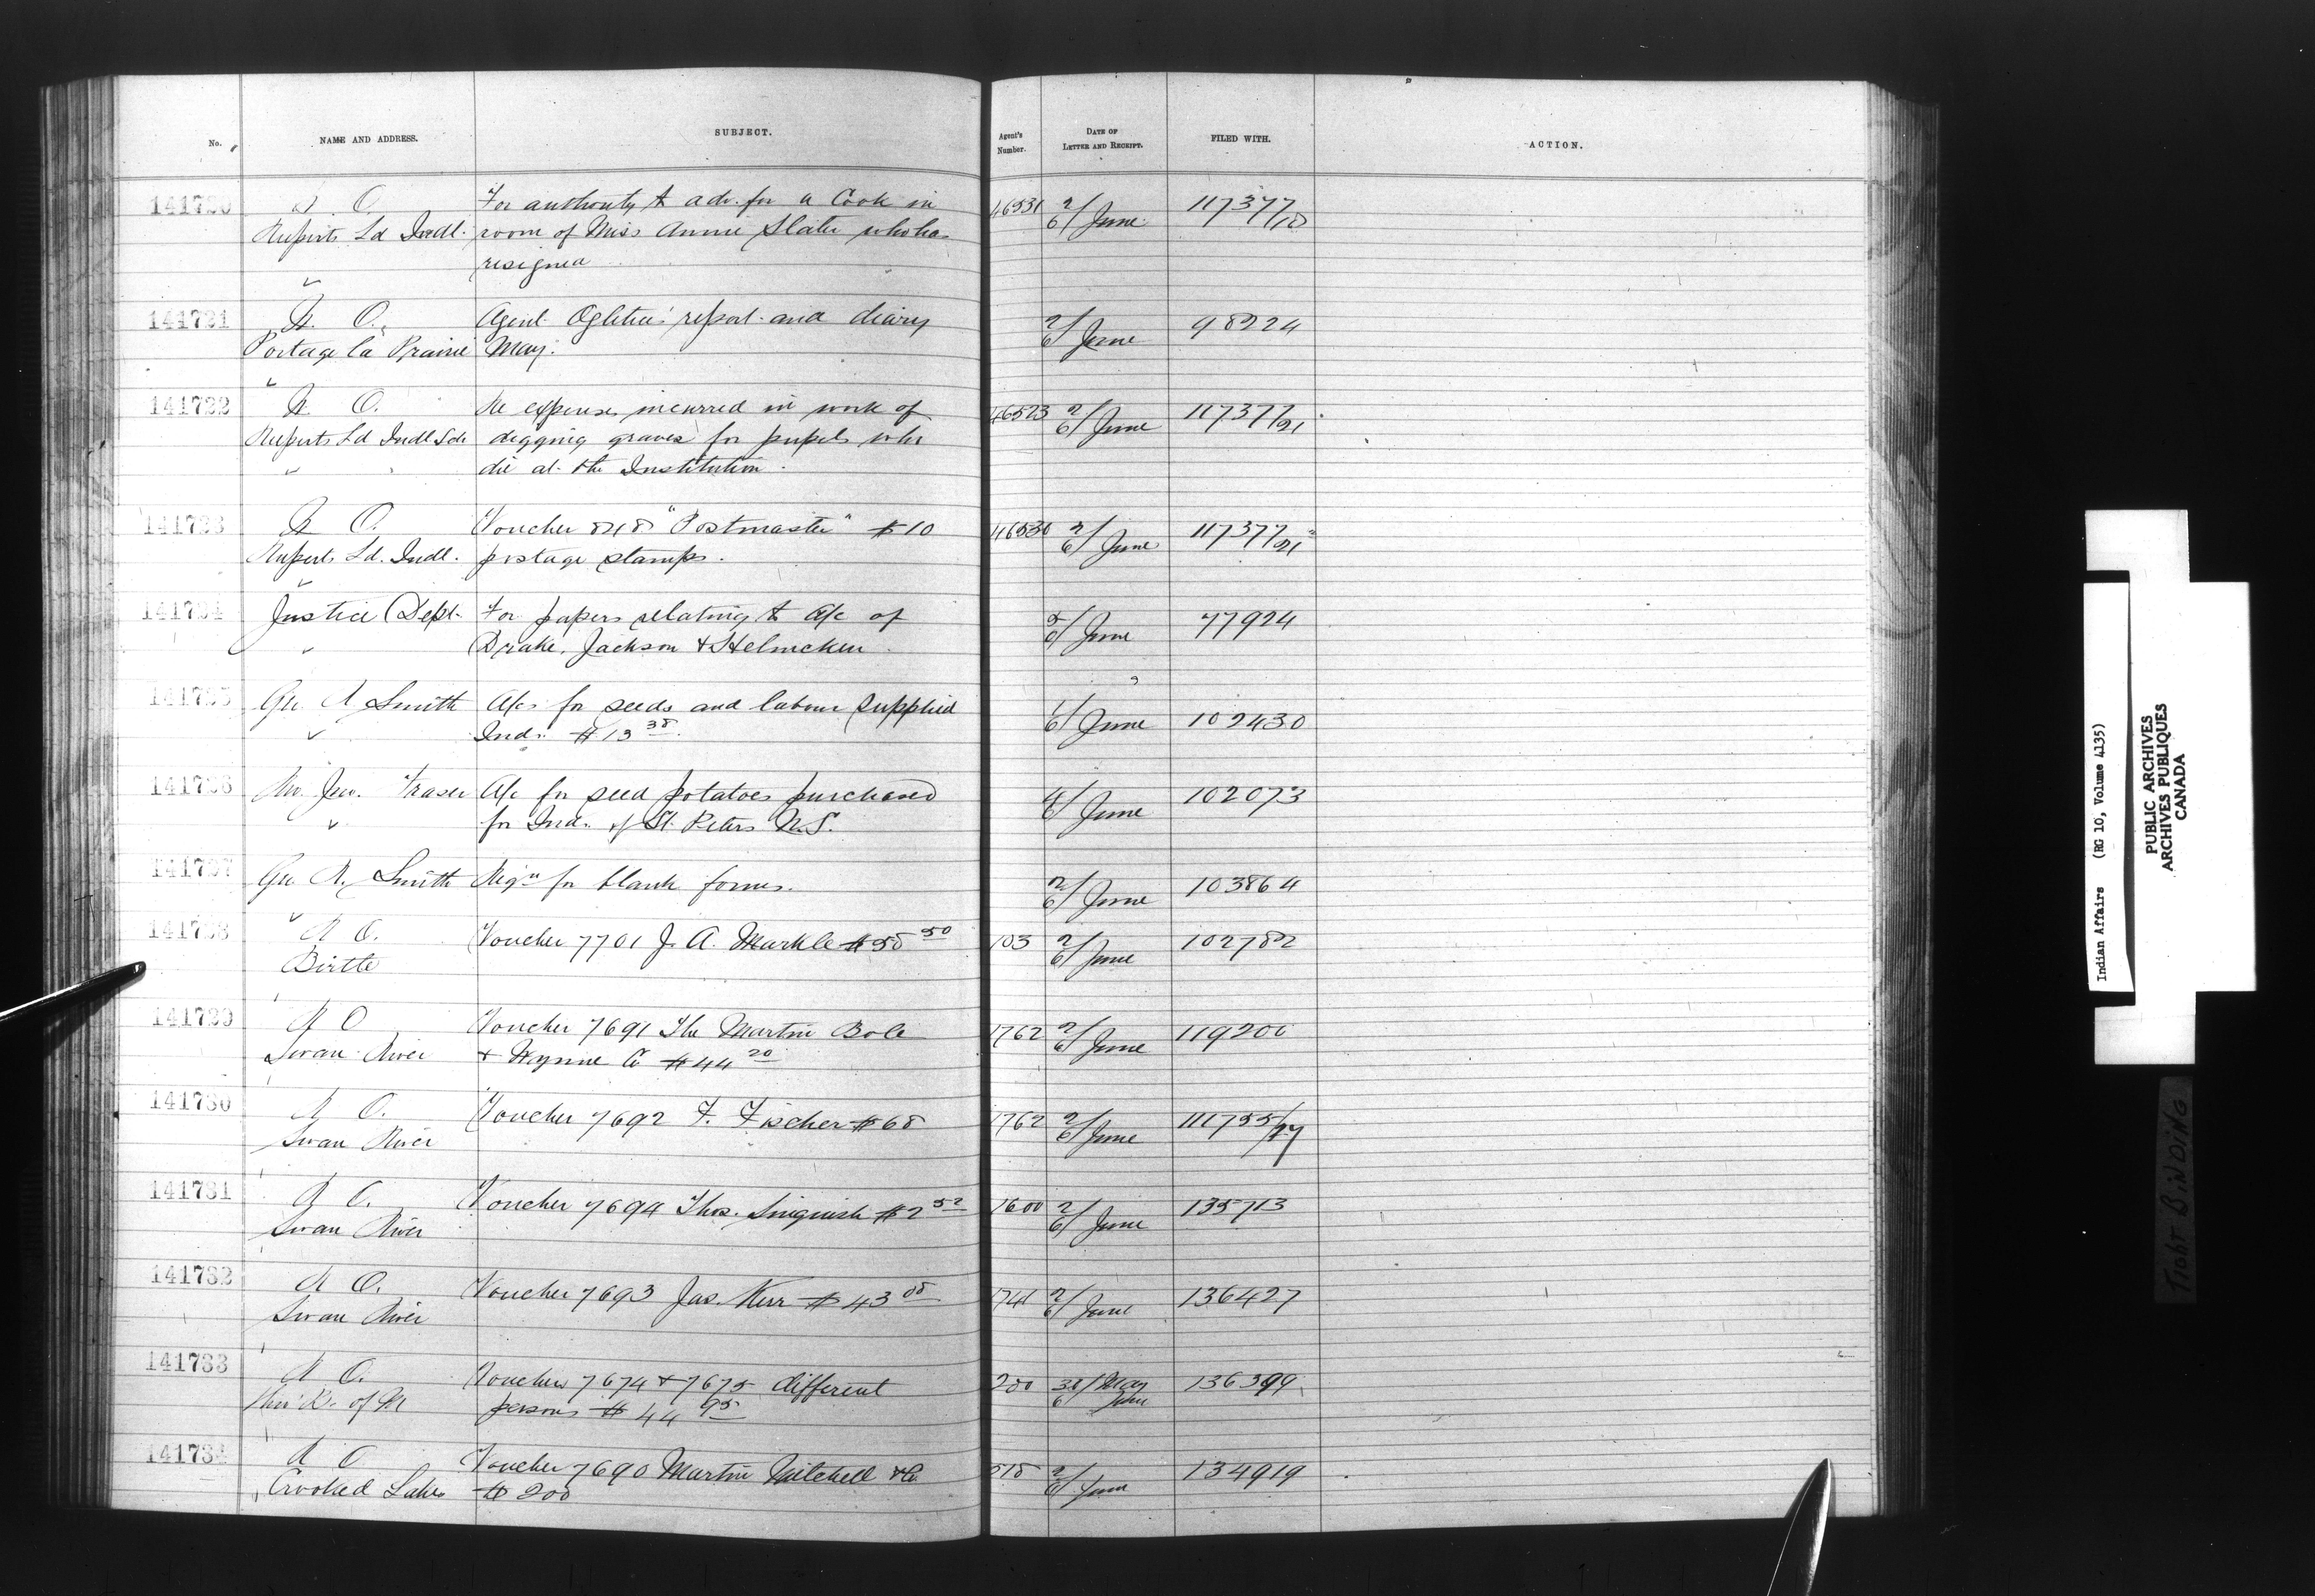 No.
NAME AND ADDRESS.
SUBJECT.
Agent's Number.
DATE OF LETTER AND RECEIPT.
FILED WITH.
ACTION.
141720
O.
For authority to adv. for a Cook in
46531
2/6 June
117377/18
Ruperts Ld Indl.
room of Miss Annie Slater who has
resigned
141721
O.
Agent Ogletree's report and diary
2/6 June
98224
Portage la Prairie
May.
141722
O.
Re expenses incurred in work of
46523
2/6 June
117377/21
Ruperts Ld Indl Sch
digging graves for pupils who
die at the Institution.
141723
O.
Voucher 848 "Postmaster" $10
46530
2/6 June
117377/21
Ruperts Ld. Indl.
postage stamps.
141724
Justice Dept.
For papers relating to a/c of
June
77924
Drake, Jackson & Helmcken
141725
Geo A Smith
A/cs for seeds and labour supplied
1/6 June
102430
Inds. $13 38
141726
Fraser
A/c for seed potatoes purchased
4/6 June
102073
for Inds. of St. Peters N.S.
141727
Geo A. Smith
Reqn for blank forms.
2/6 June
103864
141728
O.
Voucher 7701 J. A. Markle $58 50
103
2/6 June
102782
Birtle
141729
O
Voucher 7691 The Martin Bole
1762
2/6 June
119200
Swan River
& Wynne Co $44 20
141730
O.
Voucher 7692 F. Fischer $68
1762
2/6 June
111755/17
Swan River
141731
O.
Voucher 7694 Thos. $2 52
1600
2/6 June
135713
Swan River
141732
O.
Voucher 7693 Jas. Kerr $43 08
1741
2/6 June
136427
Swan River
141733
O.
Vouchers 7674 & 7675 different
200
30/6 May June
136399
of M
persons $44 95
141734
O
Voucher 7690 Martin Mitchell & Co.
518
2/6 June
134919
Crooked Lakes
$200
Indian Affairs (RG 10, Volume 4135)
PUBLIC ARCHIVES
ARCHIVES PUBLIQUES
CANADA
BINDING